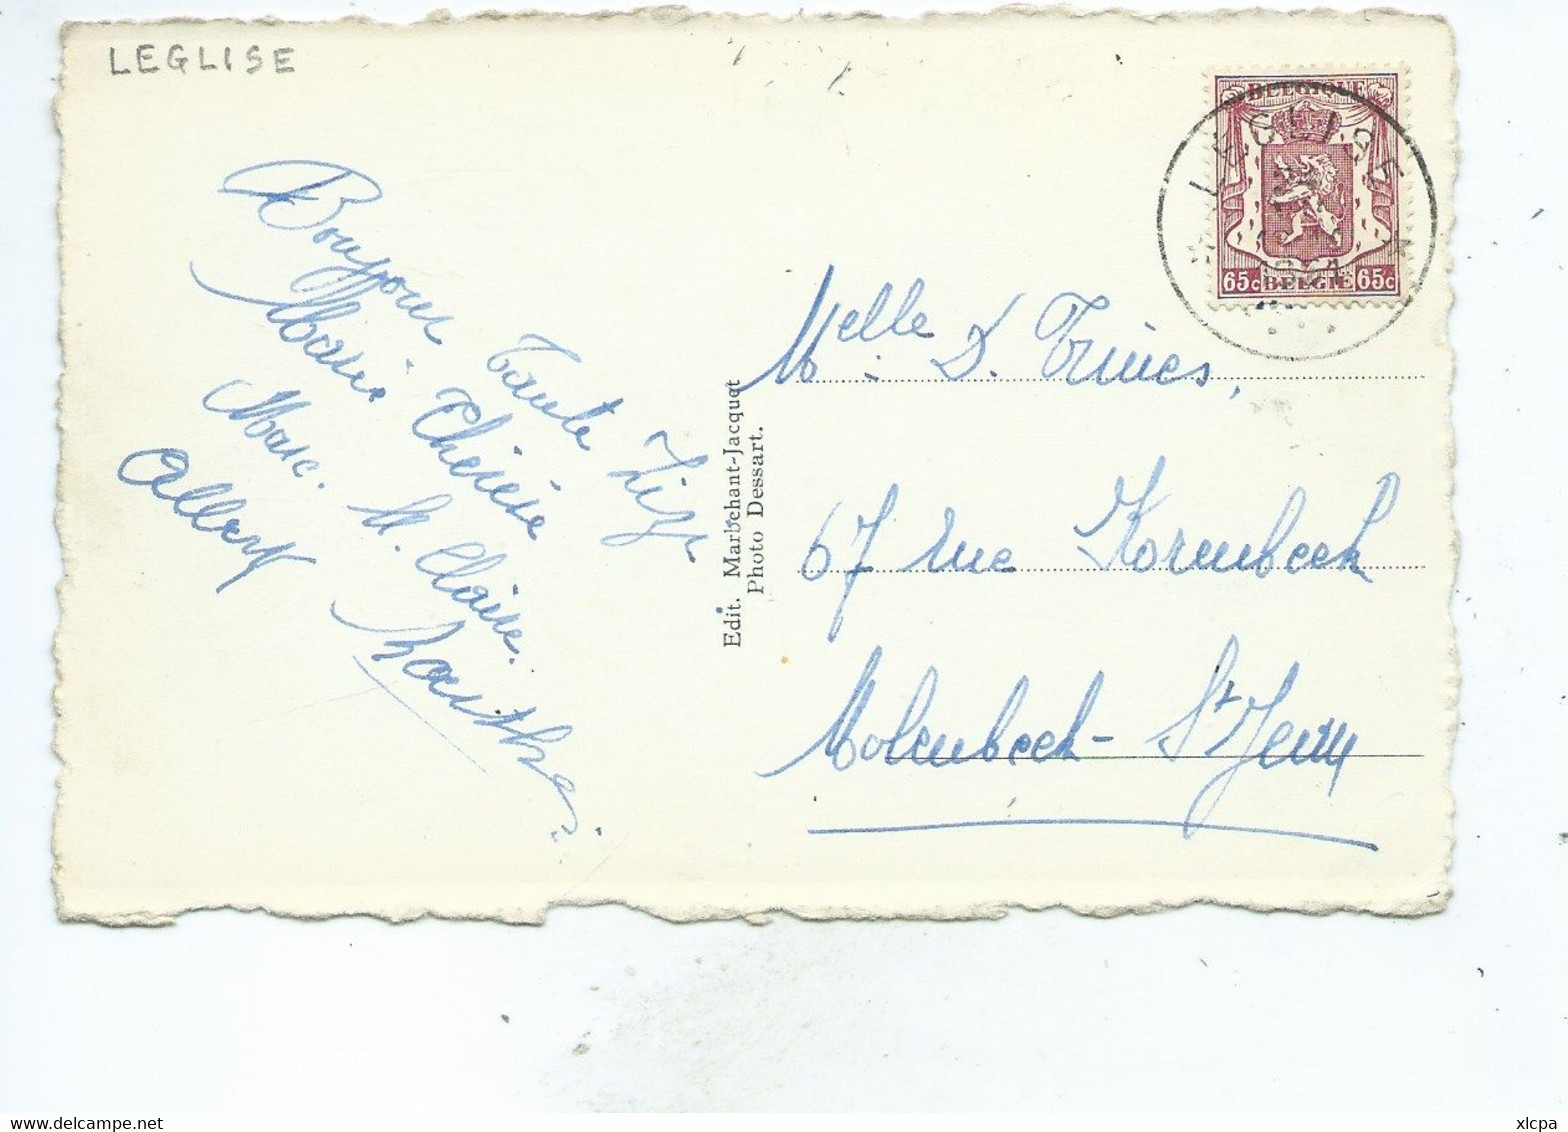 LEGLISE
BELGIQUE
LEGLISE
65c BELGIË 65c
Bonjour Tante
Marie Thérèse
Marc. M. Claire.
Albert Marthe
Edit. Marechant-Jacquet
Photo Dessart.
Melle D. Trines,
67 rue Korenbeek
Molenbeek - St Jean
Delcampe.net
xlcpa